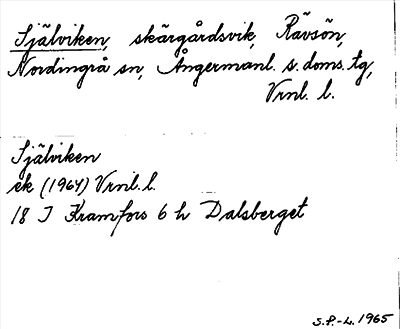 Själviken, skärgårdsvik, Rävsön,
Nordingrå sn, Ångermanl. s. doms. tg,
Vrnl. l.
Själviken
ek (1964) Vrnl. l.
18 J Kramfors 6 h Dalsberget
S.P.-L. 1965